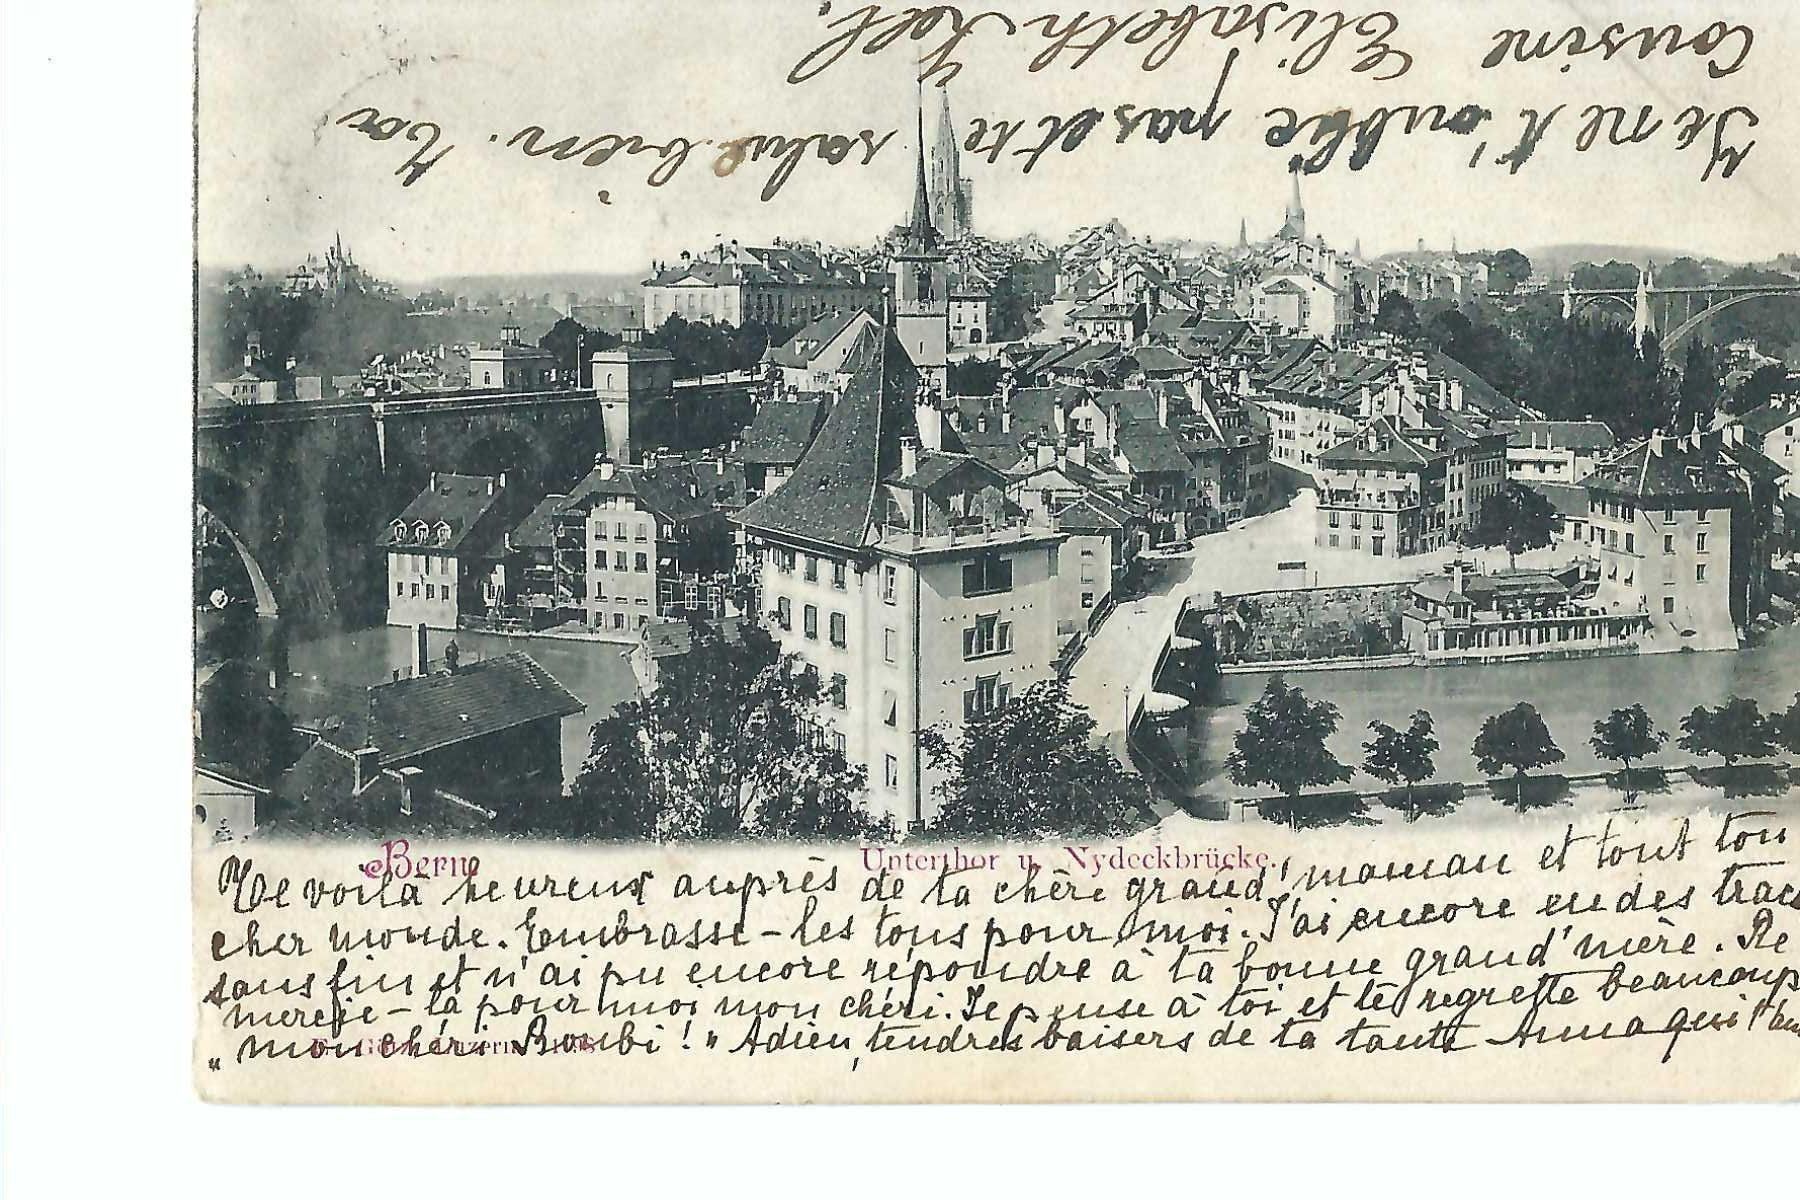 Je ne t'oublie pas et te salue bien. Ta
cousine Elisabeth
Berne
Unterthor u. Nydeckbrücke.
Te voilà heureux auprès de ta chère grand'maman et tout ton
cher monde. Embrasse-les tous pour moi. J'ai encore eu des tracas
sans fin et n'ai pu encore répondre à ta bonne grand'mère. Re
mercie-la pour moi mon chéri. Je pense à toi et te regrette beaucoup
"mon chéri Boubi!" Adieu, tendres baisers de ta tante Anna qui t'aime